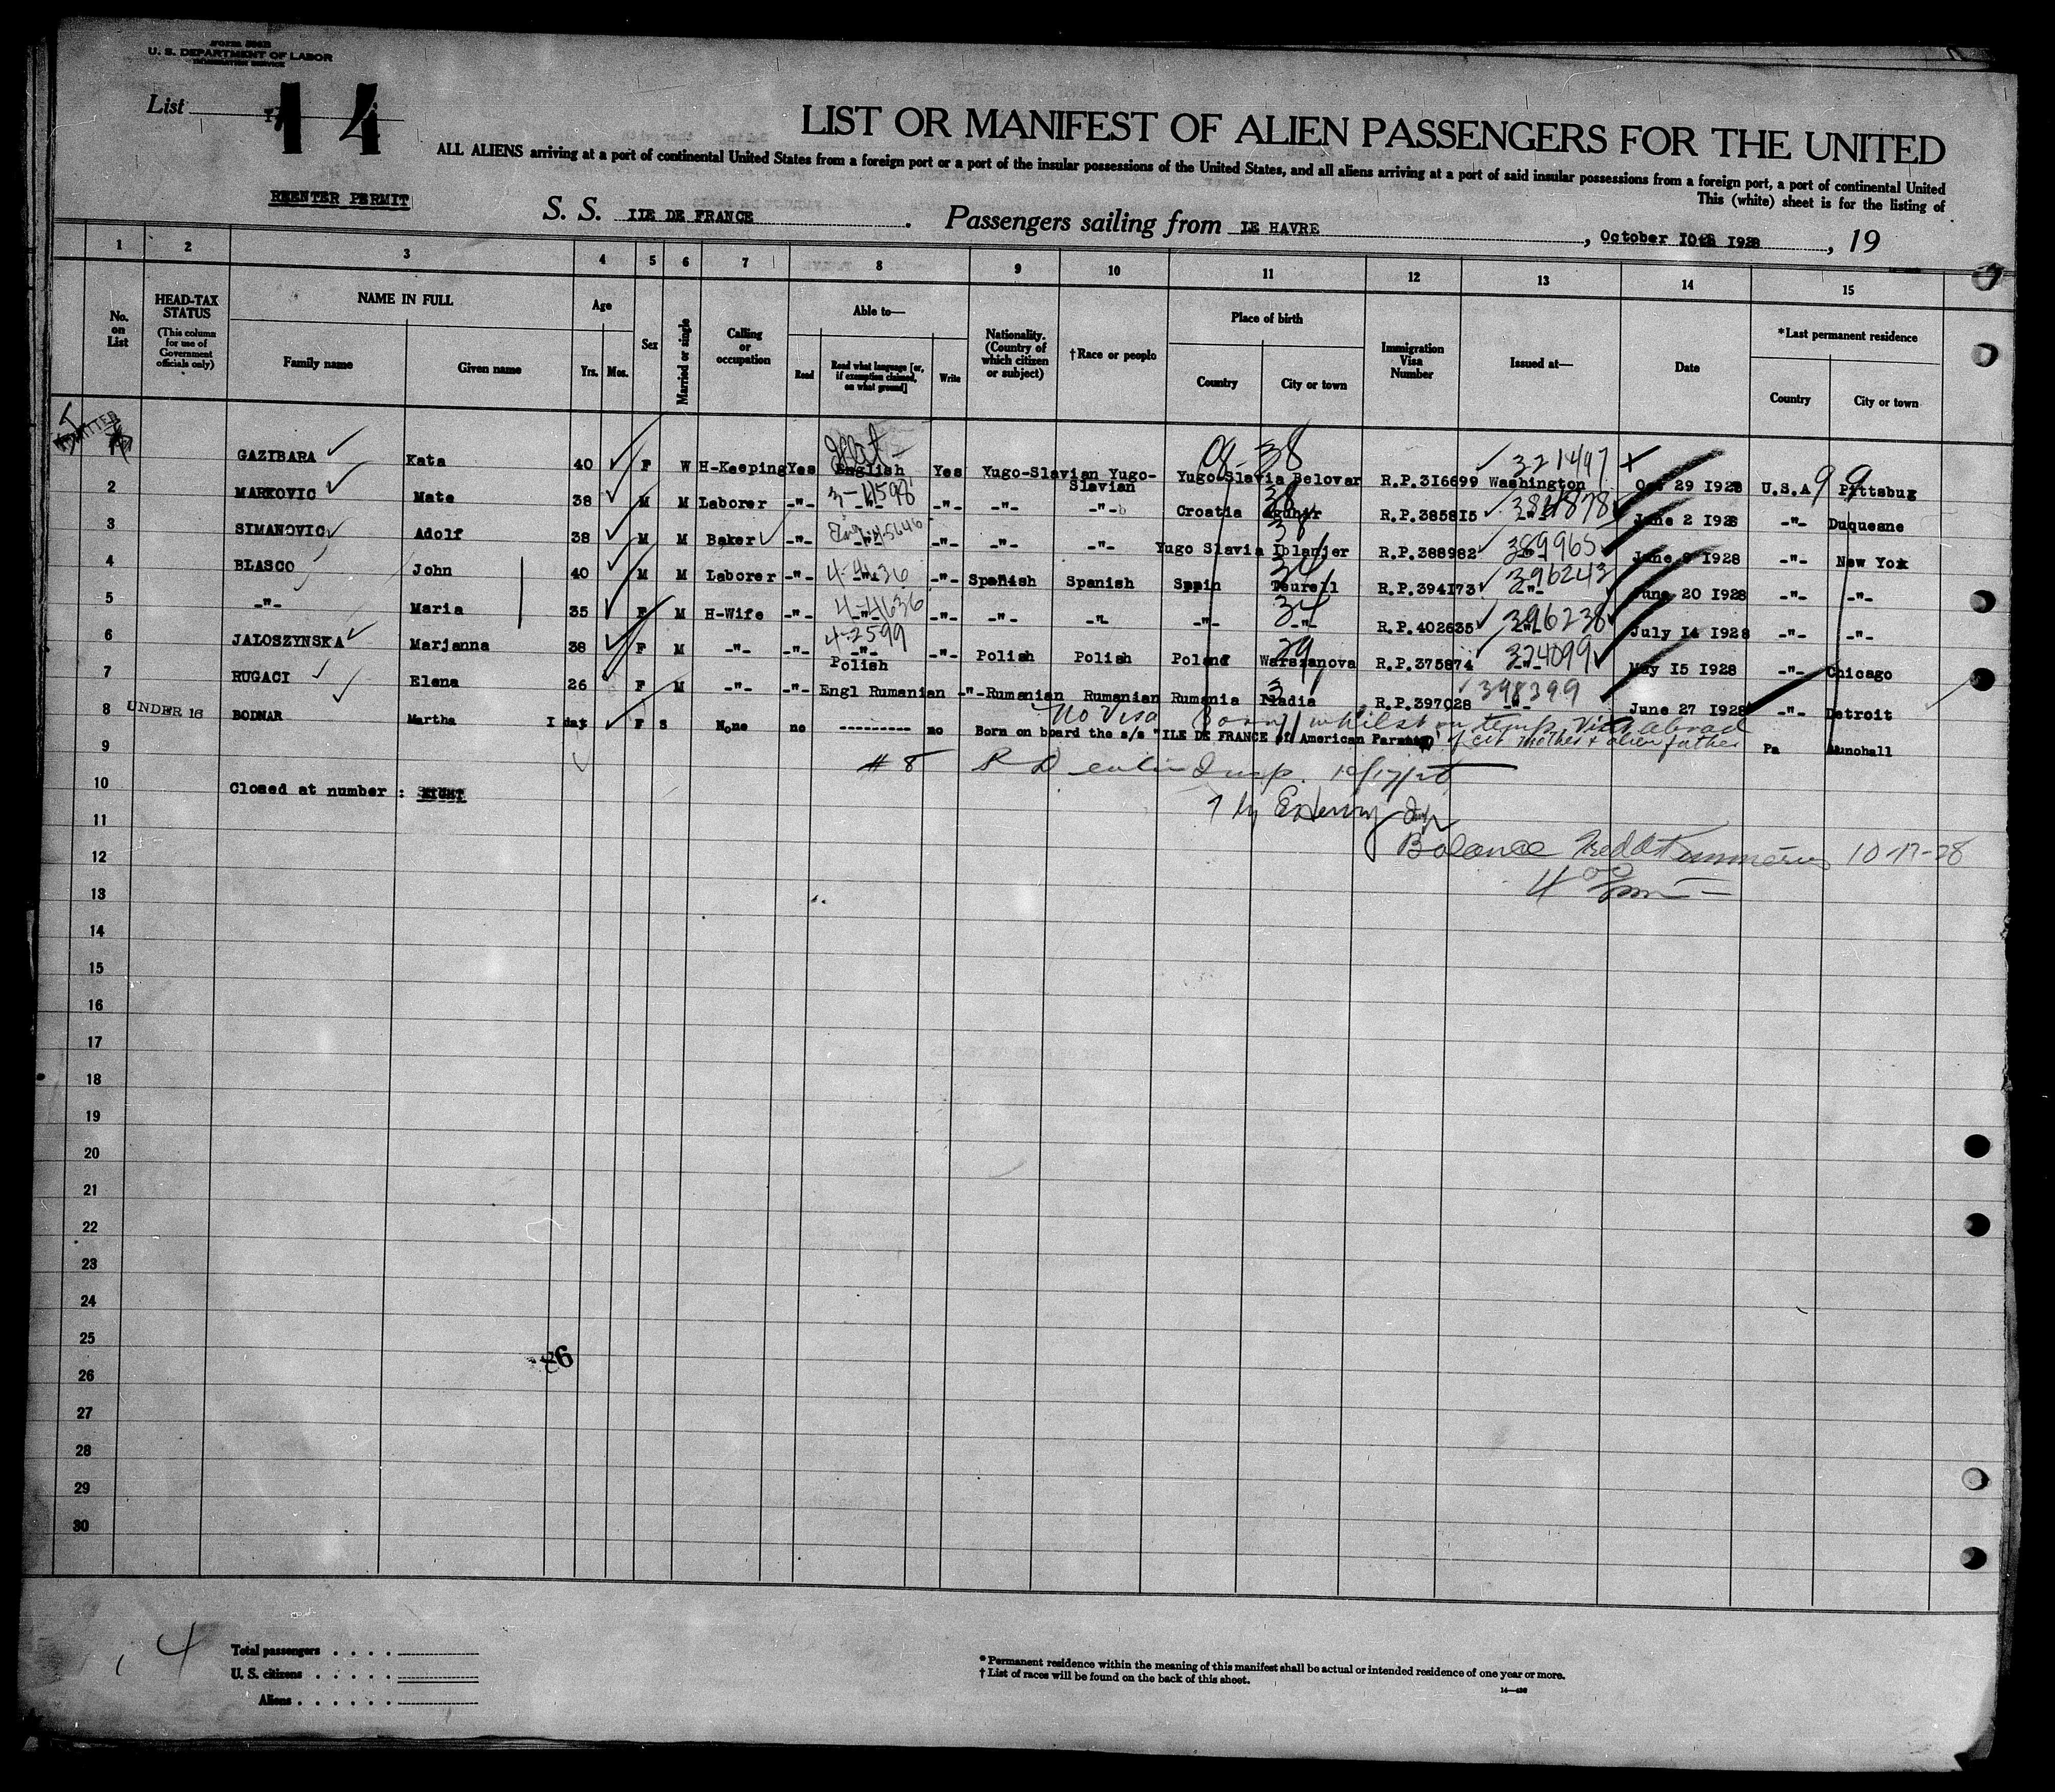 Form 500B
U. S. DEPARTMENT OF LABOR
IMMIGRATION SERVICE
List 14
LIST OR MANIFEST OF ALIEN PASSENGERS FOR THE UNITED
ALL ALIENS arriving at a port of continental United States from a foreign port or a port of the insular possessions of the United States, and all aliens arriving at a port of said insular possessions from a foreign port, a port of continental United
This (white) sheet is for the listing of
REENTER PERMIT
S. S. ILE DE FRANCE. Passengers sailing from LE HAVRE, October 10th 1928, 19
1 2 3 4 5 6 7 8 9 10 11 12 13 14 15
No. on List
HEAD-TAX STATUS
(This column for use of Government officials only)
NAME IN FULL
Family name Given name
Age
Yrs. Mos.
Sex
Married or single
Calling or occupation
Able to—
Read Read what language [or, if exemption claimed, on what ground] Write
Nationality. (Country of which citizen or subject)
†Race or people
Place of birth
Country City or town
Immigration Visa Number
Issued at—
Date
*Last permanent residence
Country City or town
ADMITTED
08-38 321497 X 99
1 GAZIBARA Kata 40 F W H-Keeping Yes English Yes Yugo-Slavian Yugo-Slavian Yugo-Slavia Belovar R.P.316699 Washington 29 1928 U.S.A Pittsbug
2 MARKOVIC Mate 38 M M Laborer -"- -"- -"- -"- -"- Croatia R.P.385815 -"- June 2 1928 -"- Duquesne
3 SIMANOVIC Adolf 38 M M Baker -"- -"- -"- -"- -"- Yugo Slavia Iblanjer R.P.388982 389965 June 1928 -"- New Yok
4 BLASCO John 40 M M Laborer -"- -"- -"- Spanish Spanish Spain Teurell R.P.394173 396243 -"- June 20 1928 -"- -"-
5 -"- Maria 35 F M H-Wife -"- 4-4636 -"- -"- -"- -"- -"- 34 -"- R.P.402635 396238 -"- July 14 1928 -"- -"-
4-2599
6 JALOSZYNSKA Marjanna 38 F M -"- -"- -"- Polish -"- Polish Polish Poland Warszanova R.P.375874 374099 May 15 1928 -"- Chicago
7 RUGACI Elena 26 F M -"- -"- Engl Rumanian -"- Rumanian Rumanian Rumania Madia R.P.397028 398399 -"- June 27 1928 -"- Detroit
No Visa Born whilst on temp. visit abroad
8 UNDER 16 BODNAR Martha 1 day F S None no --------- no Born on board the s/s "ILE DE FRANCE of American Parents of cit mother & alien father Pa Munohall
9 # 8
10 Closed at number : EIGHT
11
12 Balance 10-17-28
13
14
15
16
17
18
19
20
21
22
23
24
25
26
27
28
29
30
4
Total passengers
U. S. citizens
Aliens
* Permanent residence within the meaning of this manifest shall be actual or intended residence of one year or more.
† List of races will be found on the back of this sheet.